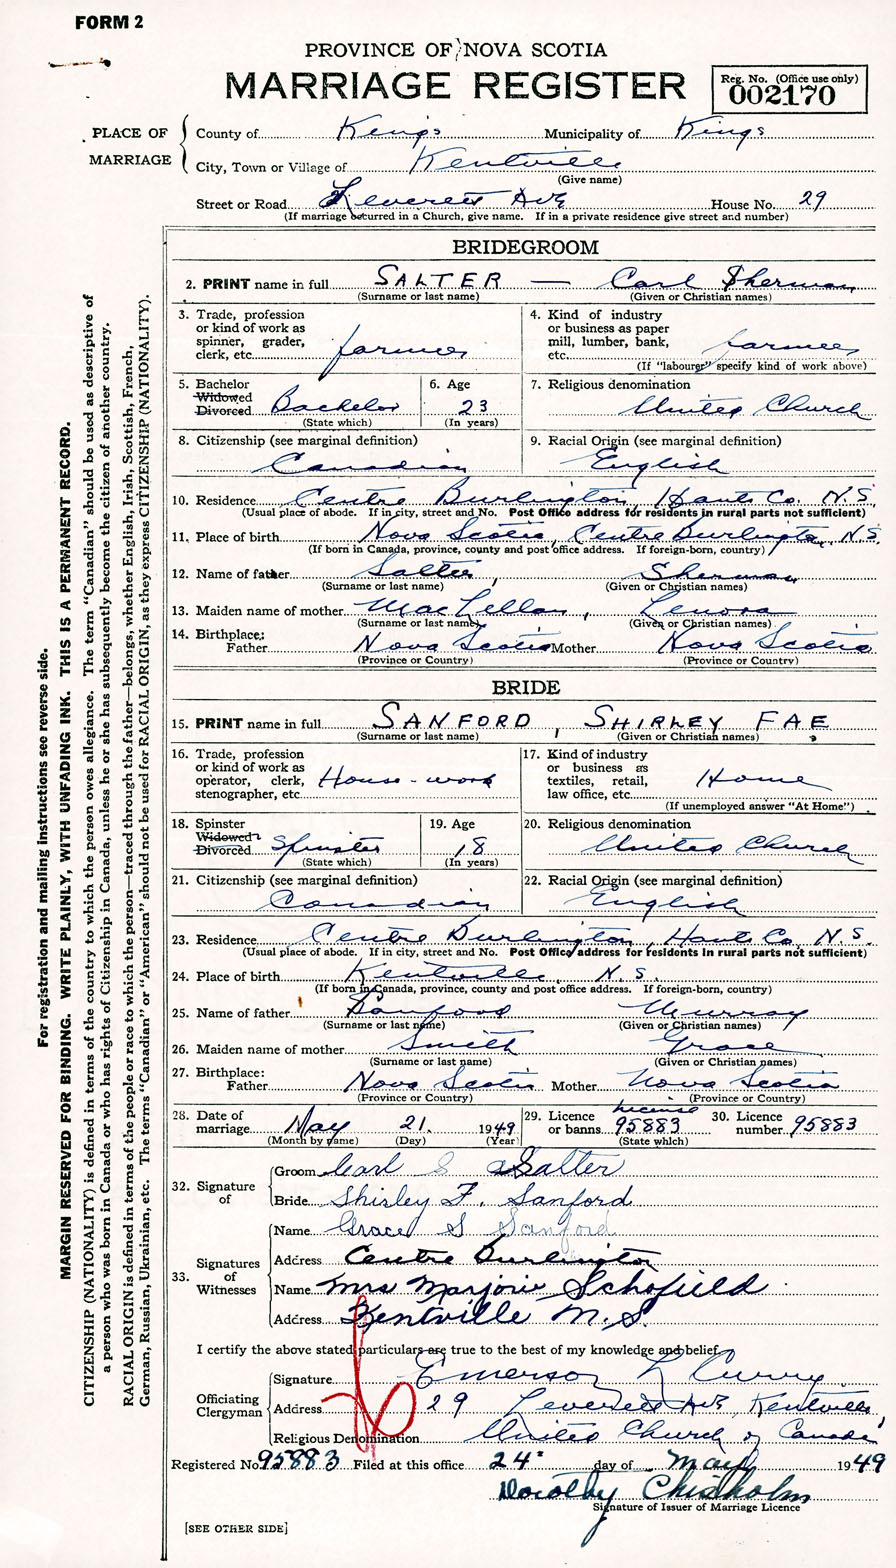 FORM 2
PROVINCE OF NOVA SCOTIA
MARRIAGE REGISTER
Reg. No. (Office use only)
002170
PLACE OF MARRIAGE
County of Kings Municipality of Kings
City, Town or Village of Kentville
(Give name)
Street or Road Leverett Ave House No. 29
(If marriage occurred in a Church, give name. If in a private residence give street and number)
BRIDEGROOM
2. PRINT name in full SALTER — Carl Sherman
(Surname or last name) (Given or Christian names)
3. Trade, profession
or kind of work as
spinner, grader,
clerk, etc. farmer
4. Kind of industry
or business as paper
mill, lumber, bank,
etc. farmer
(If "labourer" specify kind of work above)
5. Bachelor
Widowed
Divorced Bachelor
(State which)
6. Age
23
(In years)
7. Religious denomination
United Church
8. Citizenship (see marginal definition)
Canadian
9. Racial Origin (see marginal definition)
English
10. Residence Centre Burlington, Hants Co. N.S.
(Usual place of abode. If in city, street and No. Post Office address for residents in rural parts not sufficient)
11. Place of birth Nova Scotia, Centre Burlington, N.S.
(If born in Canada, province, county and post office address. If foreign-born, country)
12. Name of father Salter, Sherman
(Surname or last name) (Given or Christian names)
13. Maiden name of mother MacLellan, Lenora
(Surname or last name) (Given or Christian names)
14. Birthplace:
Father Nova Scotia Mother Nova Scotia
(Province or Country) (Province or Country)
BRIDE
15. PRINT name in full SANFORD, SHIRLEY FAE
(Surname or last name) (Given or Christian names)
16. Trade, profession
or kind of work as
operator, clerk,
stenographer, etc. House-work
17. Kind of industry
or business as
textiles, retail,
law office, etc. Home
(If unemployed answer "At Home")
18. Spinster
Widowed
Divorced Spinster
(State which)
19. Age
18
(In years)
20. Religious denomination
United Church
21. Citizenship (see marginal definition)
Canadian
22. Racial Origin (see marginal definition)
English
23. Residence Centre Burlington, Hants Co. N.S.
(Usual place of abode. If in city, street and No. Post Office address for residents in rural parts not sufficient)
24. Place of birth Kentville, N.S.
(If born in Canada, province, county and post office address. If foreign-born, country)
25. Name of father Sanford Murray
(Surname or last name) (Given or Christian names)
26. Maiden name of mother Smith Grace
(Surname or last name) (Given or Christian names)
27. Birthplace:
Father Nova Scotia Mother Nova Scotia
(Province or Country) (Province or Country)
28. Date of
marriage May 21. 1949
(Month by name) (Day) (Year)
29. Licence
or banns License 95883
(State which)
30. Licence
number 95883
32. Signature of
Groom Carl S Salter
Bride Shirley F. Sanford
33. Signatures of Witnesses
Name Grace S Sanford
Address Centre Burlington
Name Mrs Marjorie Schofield
Address Kentville N.S.
I certify the above stated particulars are true to the best of my knowledge and belief.
Officiating Clergyman
Signature Emerson L Curry
Address 29 Leverett Ave Kentville,
Religious Denomination United Church of Canada
Registered No. 95883 Filed at this office 24 day of May 1949
Dorothy Chisholm
Signature of Issuer of Marriage Licence
[SEE OTHER SIDE]
For registration and mailing instructions see reverse side.
MARGIN RESERVED FOR BINDING. WRITE PLAINLY, WITH UNFADING INK. THIS IS A PERMANENT RECORD.
CITIZENSHIP (NATIONALITY) is defined in terms of the country to which the person owes allegiance. The term "Canadian" should be used as descriptive of
a person who was born in Canada or who has rights of Citizenship in Canada, unless he or she has subsequently become the citizen of another country.
RACIAL ORIGIN is defined in terms of the people or race to which the person—traced through the father—belongs, whether English, Irish, Scottish, French,
German, Russian, Ukrainian, etc. The terms "Canadian" or "American" should not be used for RACIAL ORIGIN, as they express CITIZENSHIP (NATIONALITY).